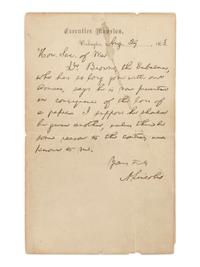 Executive Mansion,
Washington, Aug. 29, 186
Hon. Sec. of War
Dr. the Embalmer,
who has so long been with our
armies, says he is now
in consequence of the loss of
a paper. I suppose he should
be given another, unless there be
some reason to the contrary, not
known to me.
Yours truly
A. Lincoln